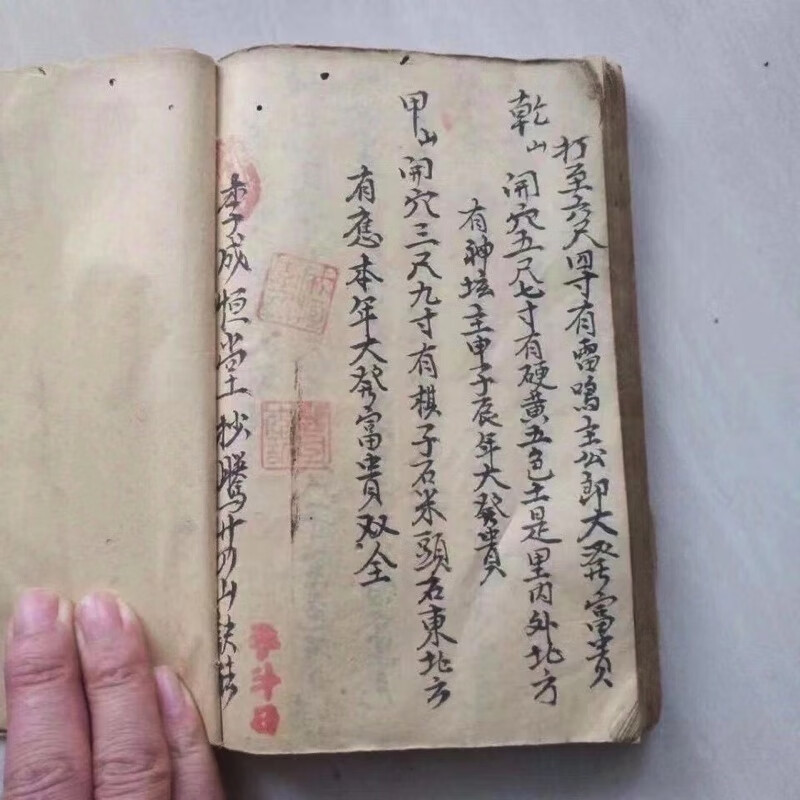 打至六尺四寸有雷鳴主公郎大發富貴
乾山 開穴五尺七寸有硬黄五色土是里内外北方
有神坛主申子辰年大發貴
甲山 開穴三尺九寸有棋子石米頭石東北方
有應本年大發富貴双全
李成恒堂抄騰廿四山訣法